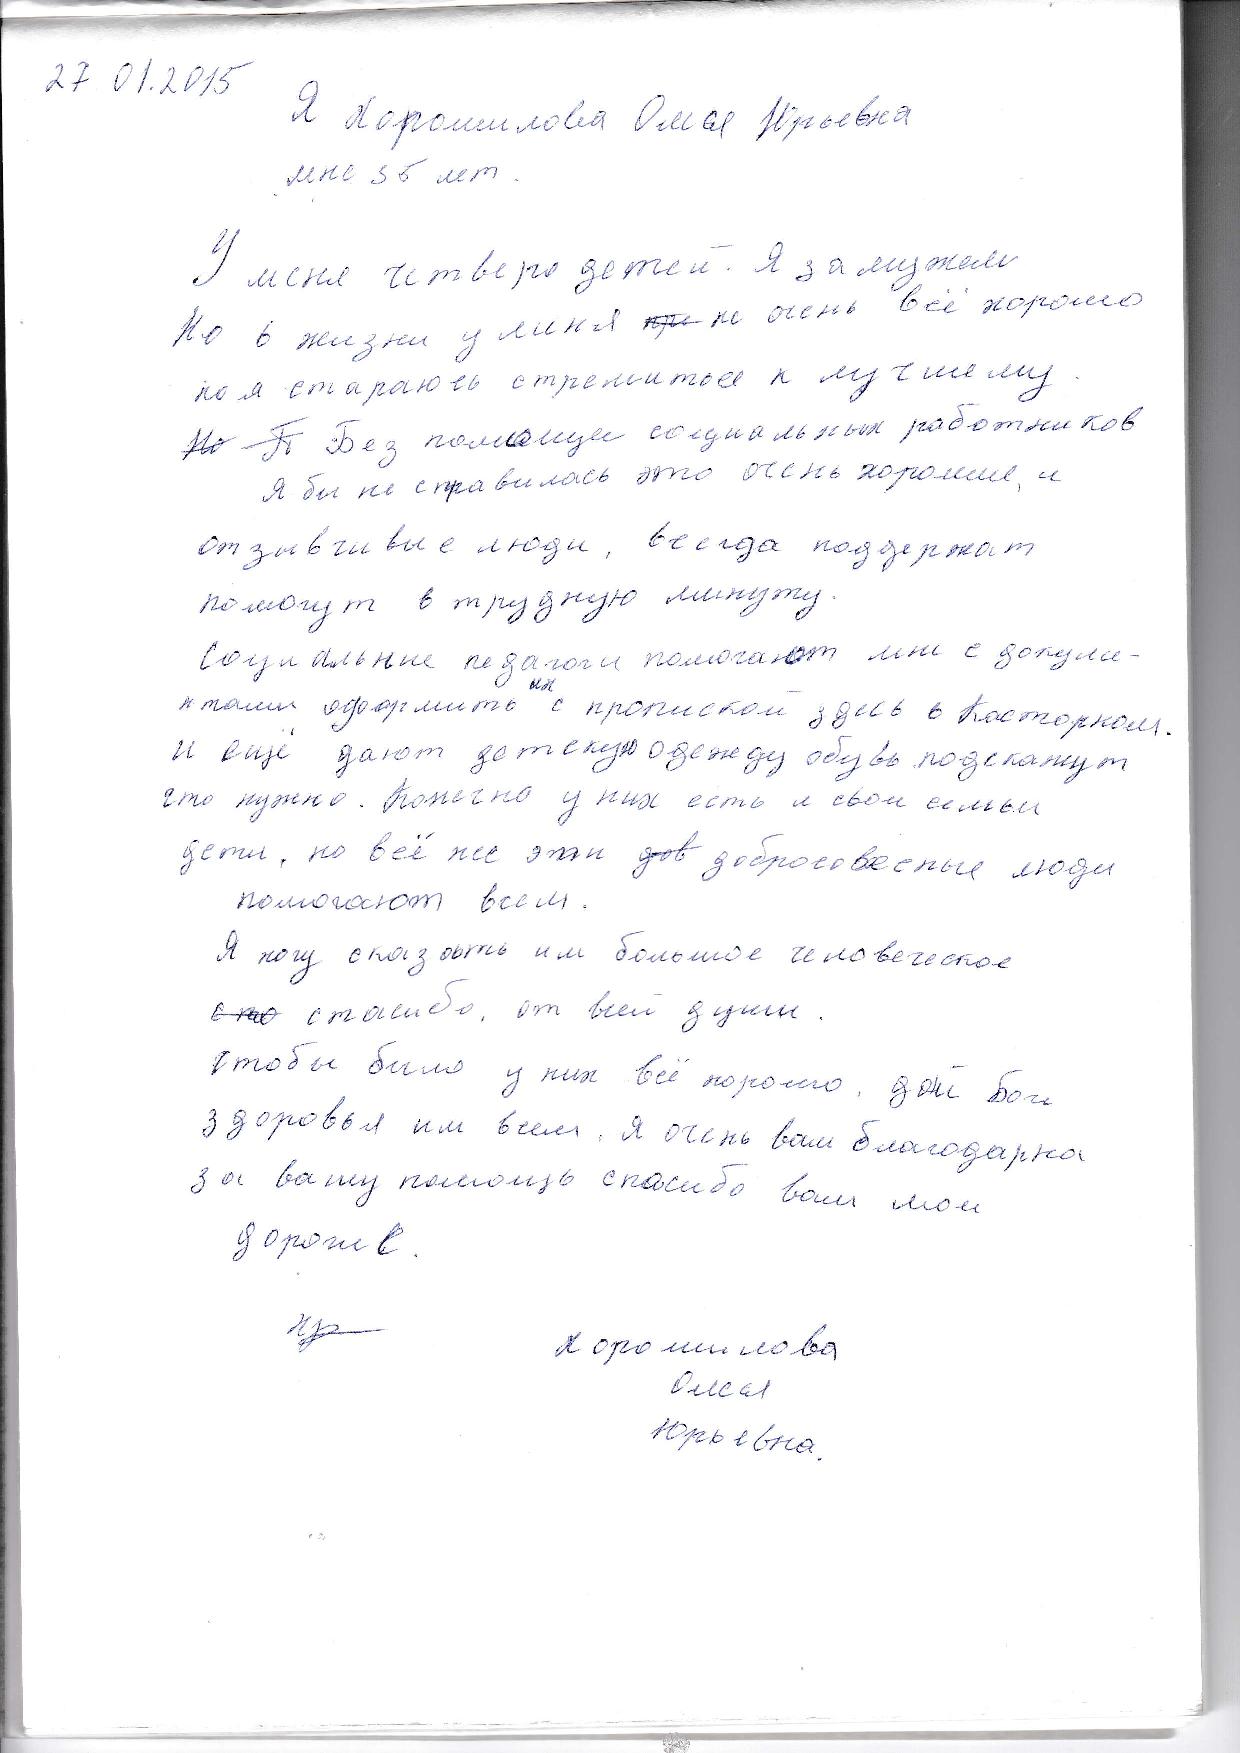 27 01.2015
Я Хорошилова Олеся Юрьевна
мне 35 лет.
У меня четверо детей. Я замужем
Но в жизни у миня не очень всё хорошо
но я стараюсь стремиться к лучшему.
Но П Без помощи социальных работников
Я бы не справилась это очень хорошие, и
отзывчивые люди, всегда поддержат
помогут в трудную минуту.
Социальные педагоги помогают мне с докуме-
нтами оформить их с пропиской здесь в Касторном.
И ещё дают детскую одежду обувь подскажут
что нужно. Конечно у них есть и свои семьи
дети, но всё же эти доб добросовесные люди
помогают всем.
Я хочу сказать им большое человеческое
спа спасибо, от всей души.
Чтобы было у них всё хорошо, дай Бог
здоровья им всем. Я очень вам благодарна
за вашу помощь спасибо вам мои
дорогие.
Хорошилова
Олеся
Юрьевна.